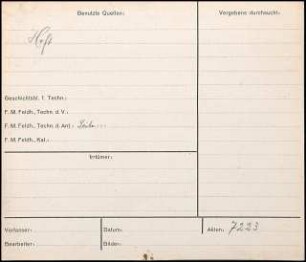 Benutzte Quellen:
Vergebens durchsucht:
Geschichtsbl. f. Techn.:
F. M. Feldh., Techn. d. V.:
F. M. Feldh., Techn. d. Ant.:
F. M. Feldh., Kal.:
Irrtümer:
Verfasser:
Datum:
Akten: 7223
Bearbeiter:
Bilder: